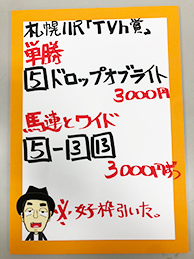 札幌11R「TVh賞」
単勝
5ドロップオブライト
3000円
馬連とワイド
5-3 13
3000円ずつ
好枠引いた。